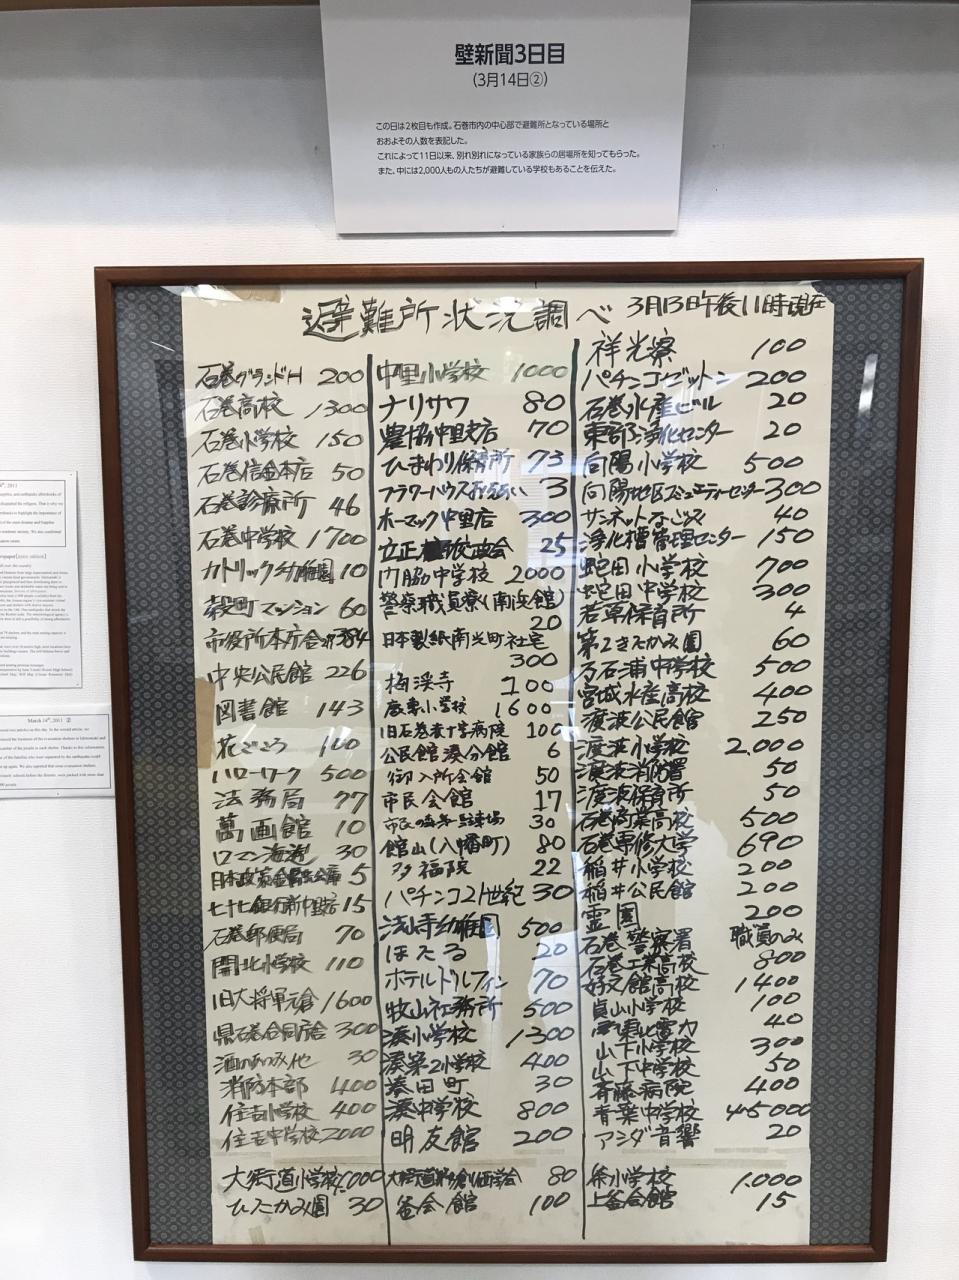 壁新聞3日目
(3月14日②)
この日は2枚目も作成。石巻市内の中心部で避難所となっている場所と
おおよその人数を表記した。
これによって11日以来、別れ別れになっている家族らの居場所を知ってもらった。
また、中には2,000人もの人たちが避難している学校もあることを伝えた。
避難所状況調べ 3月13日午後11時現在
石巻グランドH 200
石巻高校 1300
石巻小学校 150
石巻信金本店 50
石巻診療所 46
石巻中学校 1700
カトリック幼稚園 10
穀町マンション 60
市役所本庁舎 384
中央公民館 226
図書館 143
花ごころ 100
ハローワーク 500
法務局 77
萬画館 10
ロマン海遊 30
日本政策金融公庫 5
七十七銀行新中里店 15
石巻郵便局 70
開北小学校 110
旧大将軍元倉 1600
県石巻合同庁舎 300
酒のかつみ他 30
消防本部 400
住吉小学校 400
住吉中学校 2000
大街道小学校 1,000
ひたかみ園 30
中里小学校 1000
ナリサワ 80
農協中里支店 70
ひまわり保育所 73
フラワーハウス 3
ホーマック中里店 300
立正佼成会 25
門脇中学校 2000
警察職員寮(南浜館)
20
日本製紙南光町社宅
300
梅渓寺 100
鹿妻小学校 1600
旧石巻赤十字病院 100
公民館湊分館 6
御入所会館 50
市民会館 17
市民 30
館山(八幡町) 80
多福院 22
パチンコ21世紀 30
法山寺幼稚園 500
ほたる 20
ホテルドルフィン 70
牧山社務所 500
湊小学校 1300
湊第2小学校 400
湊田町 30
湊中学校 800
明友館 200
大街道 創価学会 80
釜会館 100
祥光寮 100
パチンコゼットン 200
石巻水産ビル 20
東部浄化センター 20
向陽小学校 500
向陽地区コミュニティーセンター 300
サンネットなごみ 40
浄化槽管理センター 150
蛇田小学校 700
蛇田中学校 300
若草保育所 4
第2きたかみ園 60
万石浦中学校 500
宮城水産高校 400
渡波公民館 250
渡波小学校 2,000
渡波消防署 50
渡波保育所 50
石巻商業高校 500
石巻専修大学 690
稲井小学校 200
稲井公民館 200
霊園 200
石巻警察署 職員のみ
石巻工業高校 800
好文館高校 1400
貞山小学校 100
東北電力 40
山下小学校 300
山下中学校 50
斉藤病院 400
青葉中学校 4~5000
アシダ音響 20
釜小学校 1,000
上釜会館 15
March 14th, 2011 ②